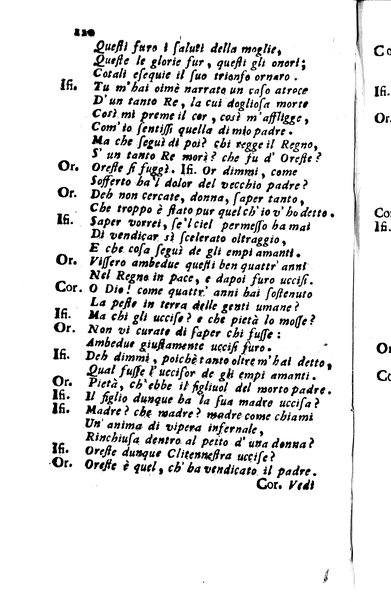 110
Questi furo i saluti della moglie,
Queste le glorie fur, questi gli onori;
Cotali esequie il suo trionfo ornaro.
Ifi. Tu m'hai oimè narrato un caso atroce
D'un tanto Re, la cui dogliosa morte
Così mi preme il cor, così m'affligge,
Com'io sentissi quella di mio padre.
Ma che seguì di poi? chi regge il Regno,
S'un tanto Re morì? che fu d'Oreste?
Or. Oreste si fuggì. Ifi. Or dimmi, come
Sofferto ha'l dolor del vecchio padre?
Or. Deh non cercate, donna, saper tanto,
Che troppo è stato pur quel ch'io v'ho detto.
Ifi. Saper vorrei, se'l ciel permesso ha mai
Di vendicar sì scelerato oltraggio,
E che cosa seguì de gli empi amanti.
Or. Vissero ambedue questi ben quattr'anni
Nel Regno in pace, e dapoi furo uccisi.
Cor. O Dio! come quattr'anni hai sostenuto
La peste in terra delle genti umane?
Ifi. Ma chi gli uccise? e che pietà lo mosse?
Or. Non vi curate di saper chi fusse:
Ambedue giustamente uccisi furo.
Ifi. Deh dimmi, poichè tanto oltre m'hai detto,
Qual fusse l'uccisor de gli empi amanti.
Or. Pietà, ch'ebbe il figliuol del morto padre.
Ifi. Il figlio dunque ha la sua madre uccisa?
Ifi. Madre? che madre? madre come chiami
Un'anima di vipera infernale,
Rinchiusa dentro al petto d'una donna?
Ifi. Oreste dunque Clitennestra uccise?
Or. Oreste è quel, ch'ha vendicato il padre.
Cor. Vedi
Co
Ifi.
Or.
Cor
Ifi
Or
Co